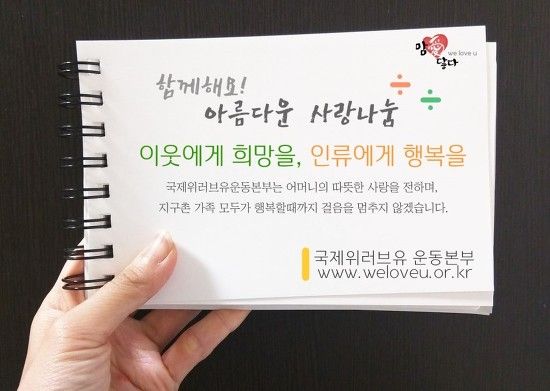 맘愛
닿다
we love u
함께해요!
아름다운 사랑나눔
이웃에게 희망을, 인류에게 행복을
국제위러브유운동본부는 어머니의 따뜻한 사랑을 전하며,
지구촌 가족 모두가 행복할때까지 걸음을 멈추지 않겠습니다.
국제위러브유 운동본부
www.weloveu.or.kr